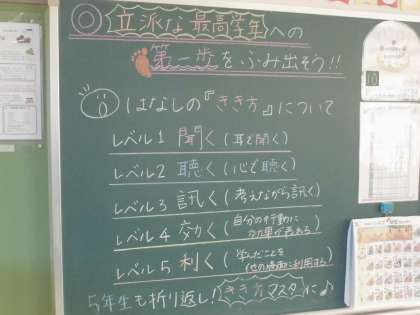 ◎立派な最高学年への
第一歩をふみ出そう!!
はなしの『きき方』について
レベル1 聞く(耳で聞く)
レベル2 聴く(心で聴く)
レベル3 訊く(考えながら訊く)
レベル4 効く(自分の行動に効果が表れる)
レベル5 利く(学んだことを他の場面に利用する)
5年生も折り返し!きき方マスターに♪
10